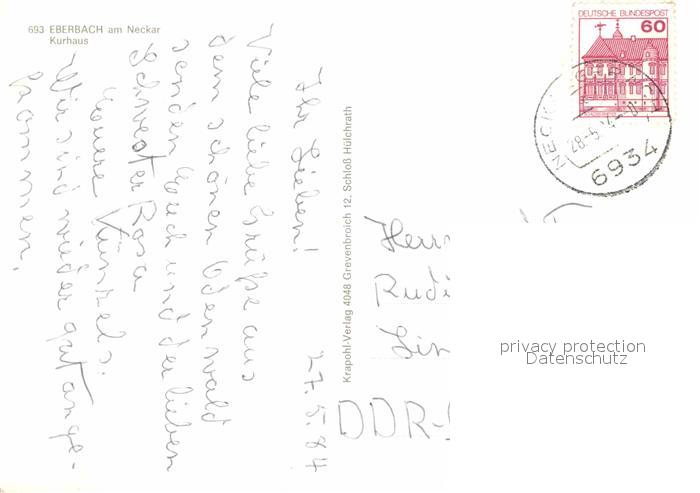 693 EBERBACH am Neckar
Kurhaus
DEUTSCHE BUNDESPOST
60
6934
28-5
27.5.84
Ihr Lieben!
Viele liebe Grüße aus
dem schönen Odenwald
senden Euch und der lieben
Schwester Rosa
Eure
Wir sind wieder gut ange-
kommen.
Krapohl-Verlag 4048 Grevenbroich 12, Schloß Hülchrath
Herr
Rudi
Lin
DDR-
privacy protection
Datenschutz